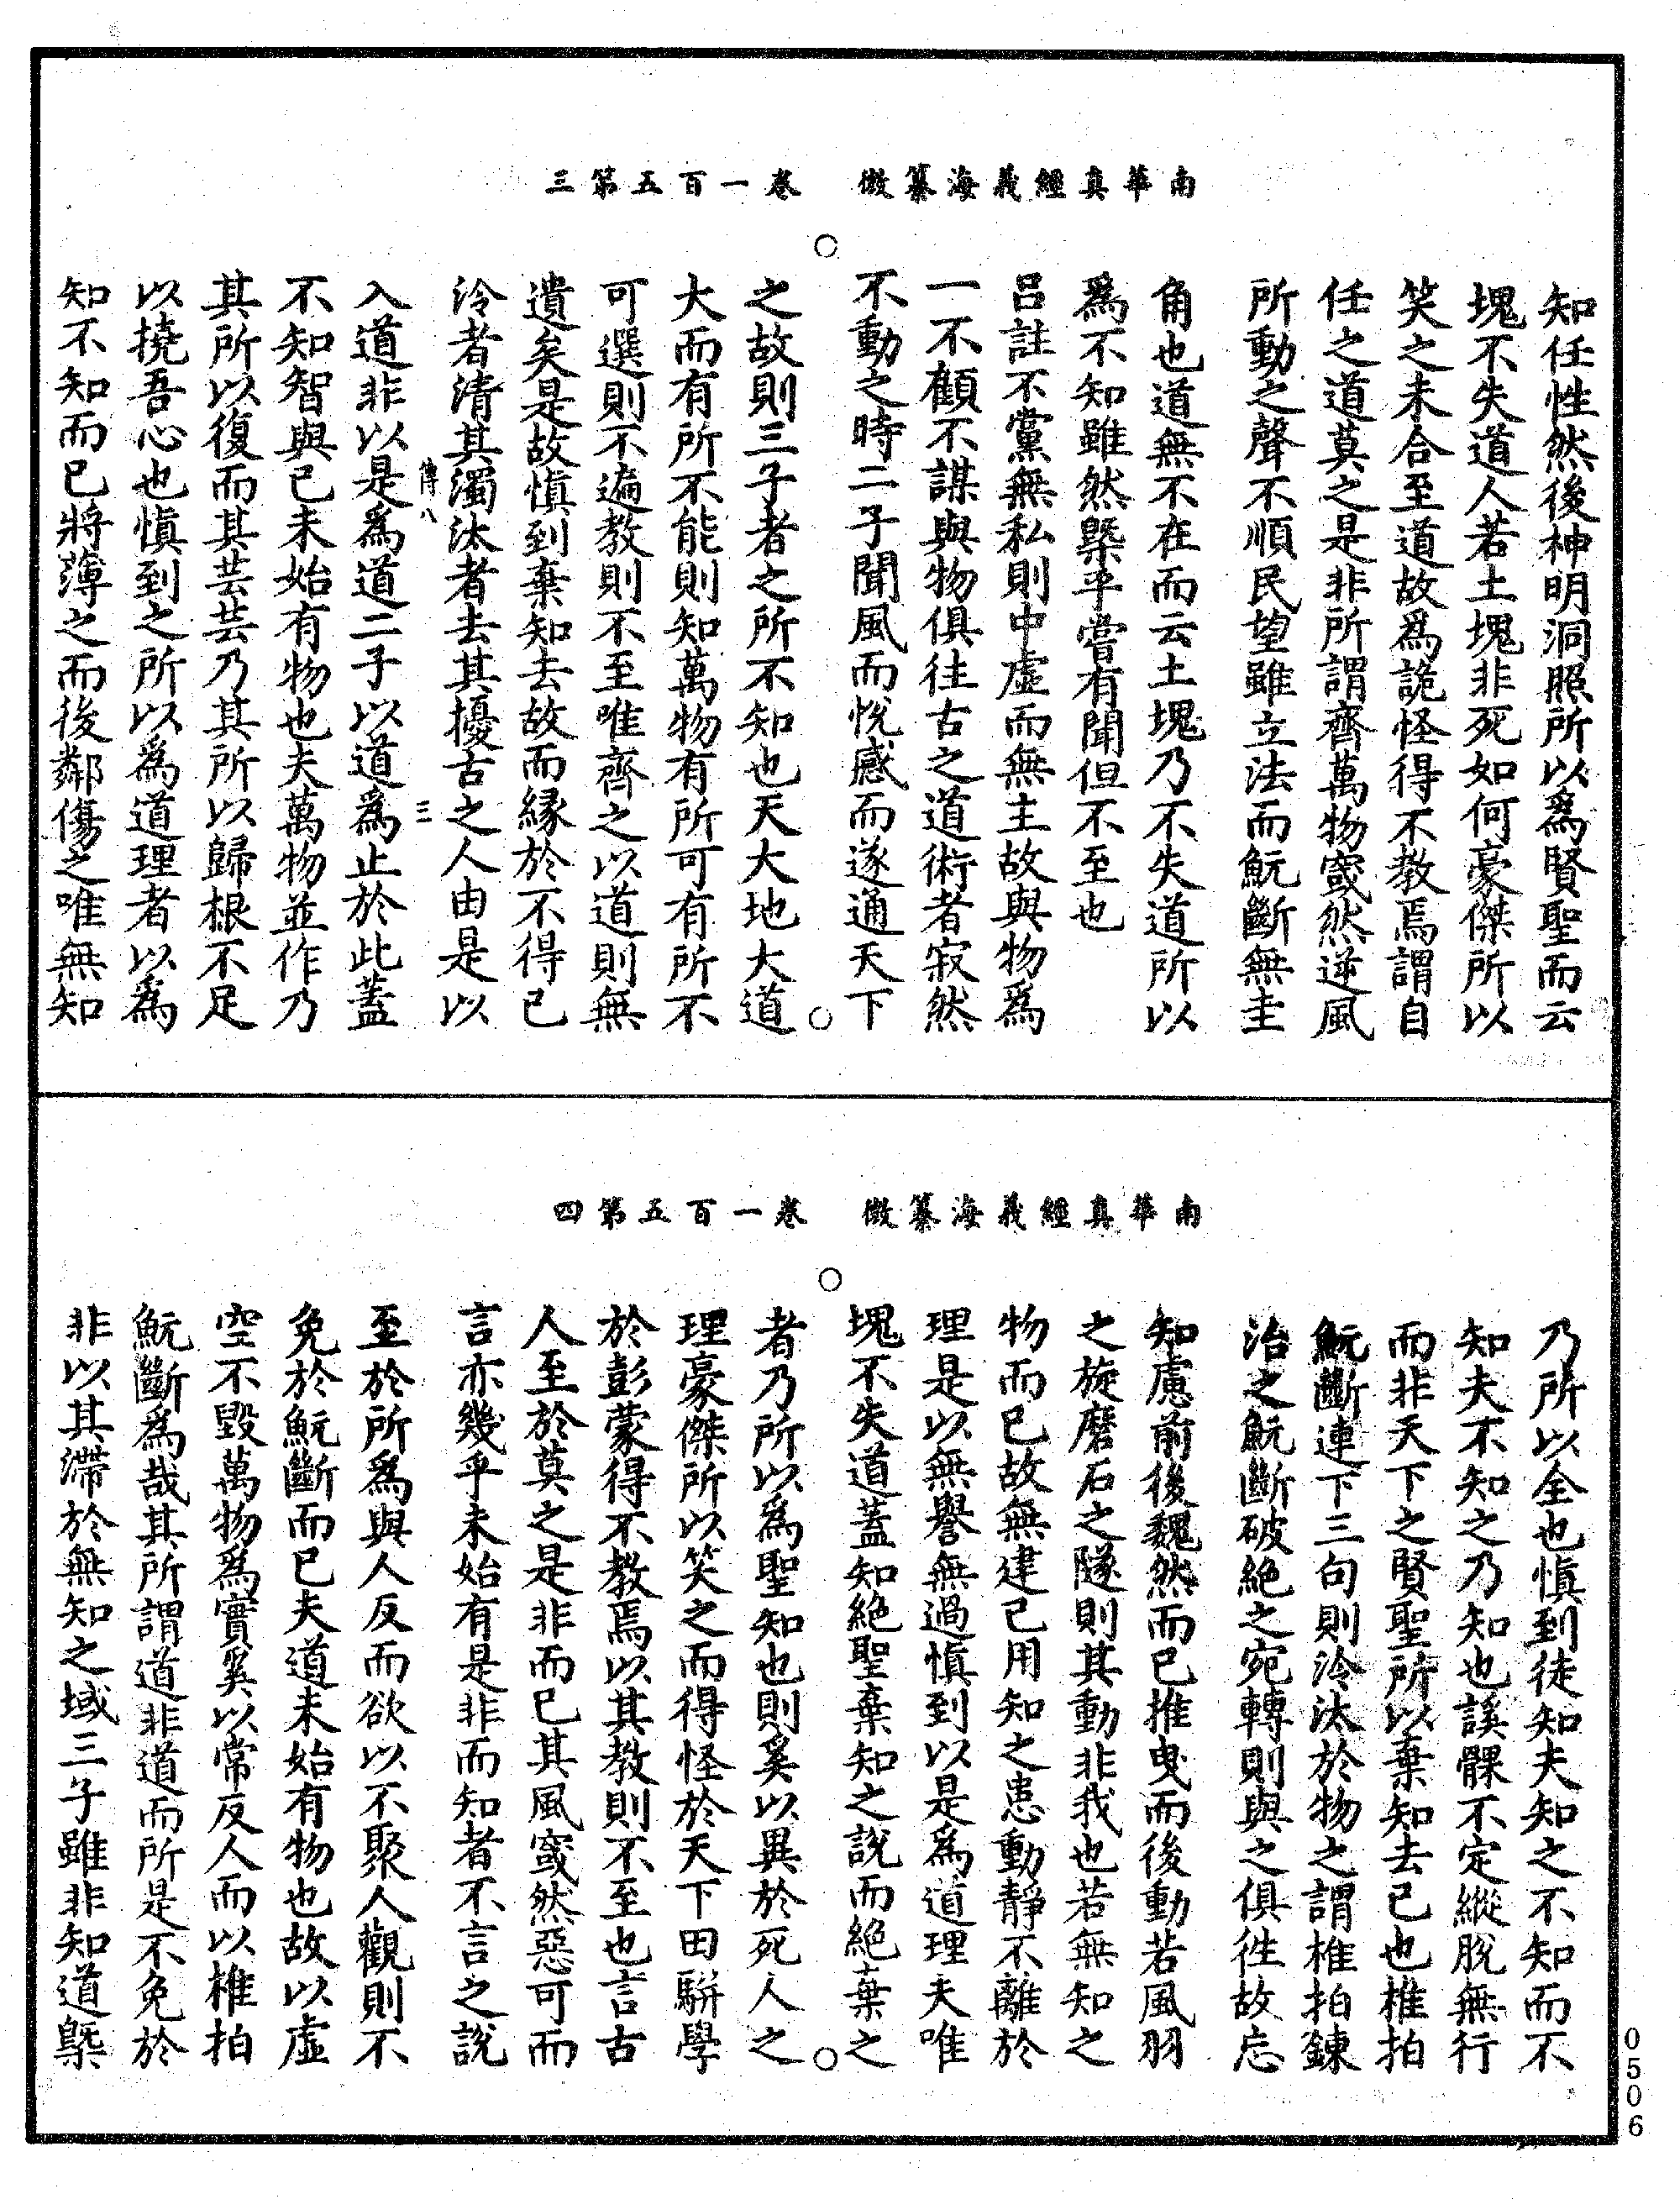 南華真經義海纂微　卷一百五第三
知任性然後神明洞照所以爲賢聖而云
塊不失道人若土塊非死如何豪傑所以
笑之未合至道故爲詭怪得不教焉謂自
任之道莫之是非所謂齊萬物窢然逆風
所動之聲不順民望雖立法而魭斷無圭
角也道無不在而云土塊乃不失道所以
爲不知雖然槩乎嘗有聞但不至也
呂註不黨無私則中虛而無主故與物爲
一不顧不謀與物俱往古之道術者寂然
不動之時二子聞風而悅感而遂通天下
之故則三子者之所不知也天大地大道
大而有所不能則知萬物有所可有所不
可選則不遍教則不至唯齊之以道則無
遺矣是故慎到棄知去故而緣於不得已
泠者清其濁汰者去其擾古之人由是以
傳八　三
入道非以是爲道二子以道爲止於此蓋
不知智與已未始有物也夫萬物並作乃
其所以復而其芸芸乃其所以歸根不足
以撓吾心也慎到之所以爲道理者以爲
知不知而已將薄之而後鄰傷之唯無知
南華真經義海纂微　卷一百五第四
乃所以全也慎到徒知夫知之不知而不
知夫不知之乃知也謑髁不定縱脫無行
而非天下之賢聖所以棄知去已也椎拍
魭斷連下三句則泠汰於物之謂椎拍鍊
治之魭斷破絕之宛轉則與之俱徃故忘
知慮前後魏然而已推曳而後動若風羽
之旋磨石之隧則其動非我也若無知之
物而已故無建己用知之患動靜不離於
理是以無譽無過慎到以是爲道理夫唯
塊不失道蓋知絕聖棄知之說而絕棄之
者乃所以爲聖知也則奚以異於死人之
理豪傑所以笑之而得怪於天下田駢學
於彭蒙得不教焉以其教則不至也言古
人至於莫之是非而已其風窢然惡可而
言亦幾乎未始有是非而知者不言之說
至於所爲與人反而欲以不聚人觀則不
免於魭斷而已夫道未始有物也故以虛
空不毀萬物爲實奚以常反人而以椎拍
魭斷爲哉其所謂道非道而所是不免於
非以其滯於無知之域三子雖非知道槩
0506